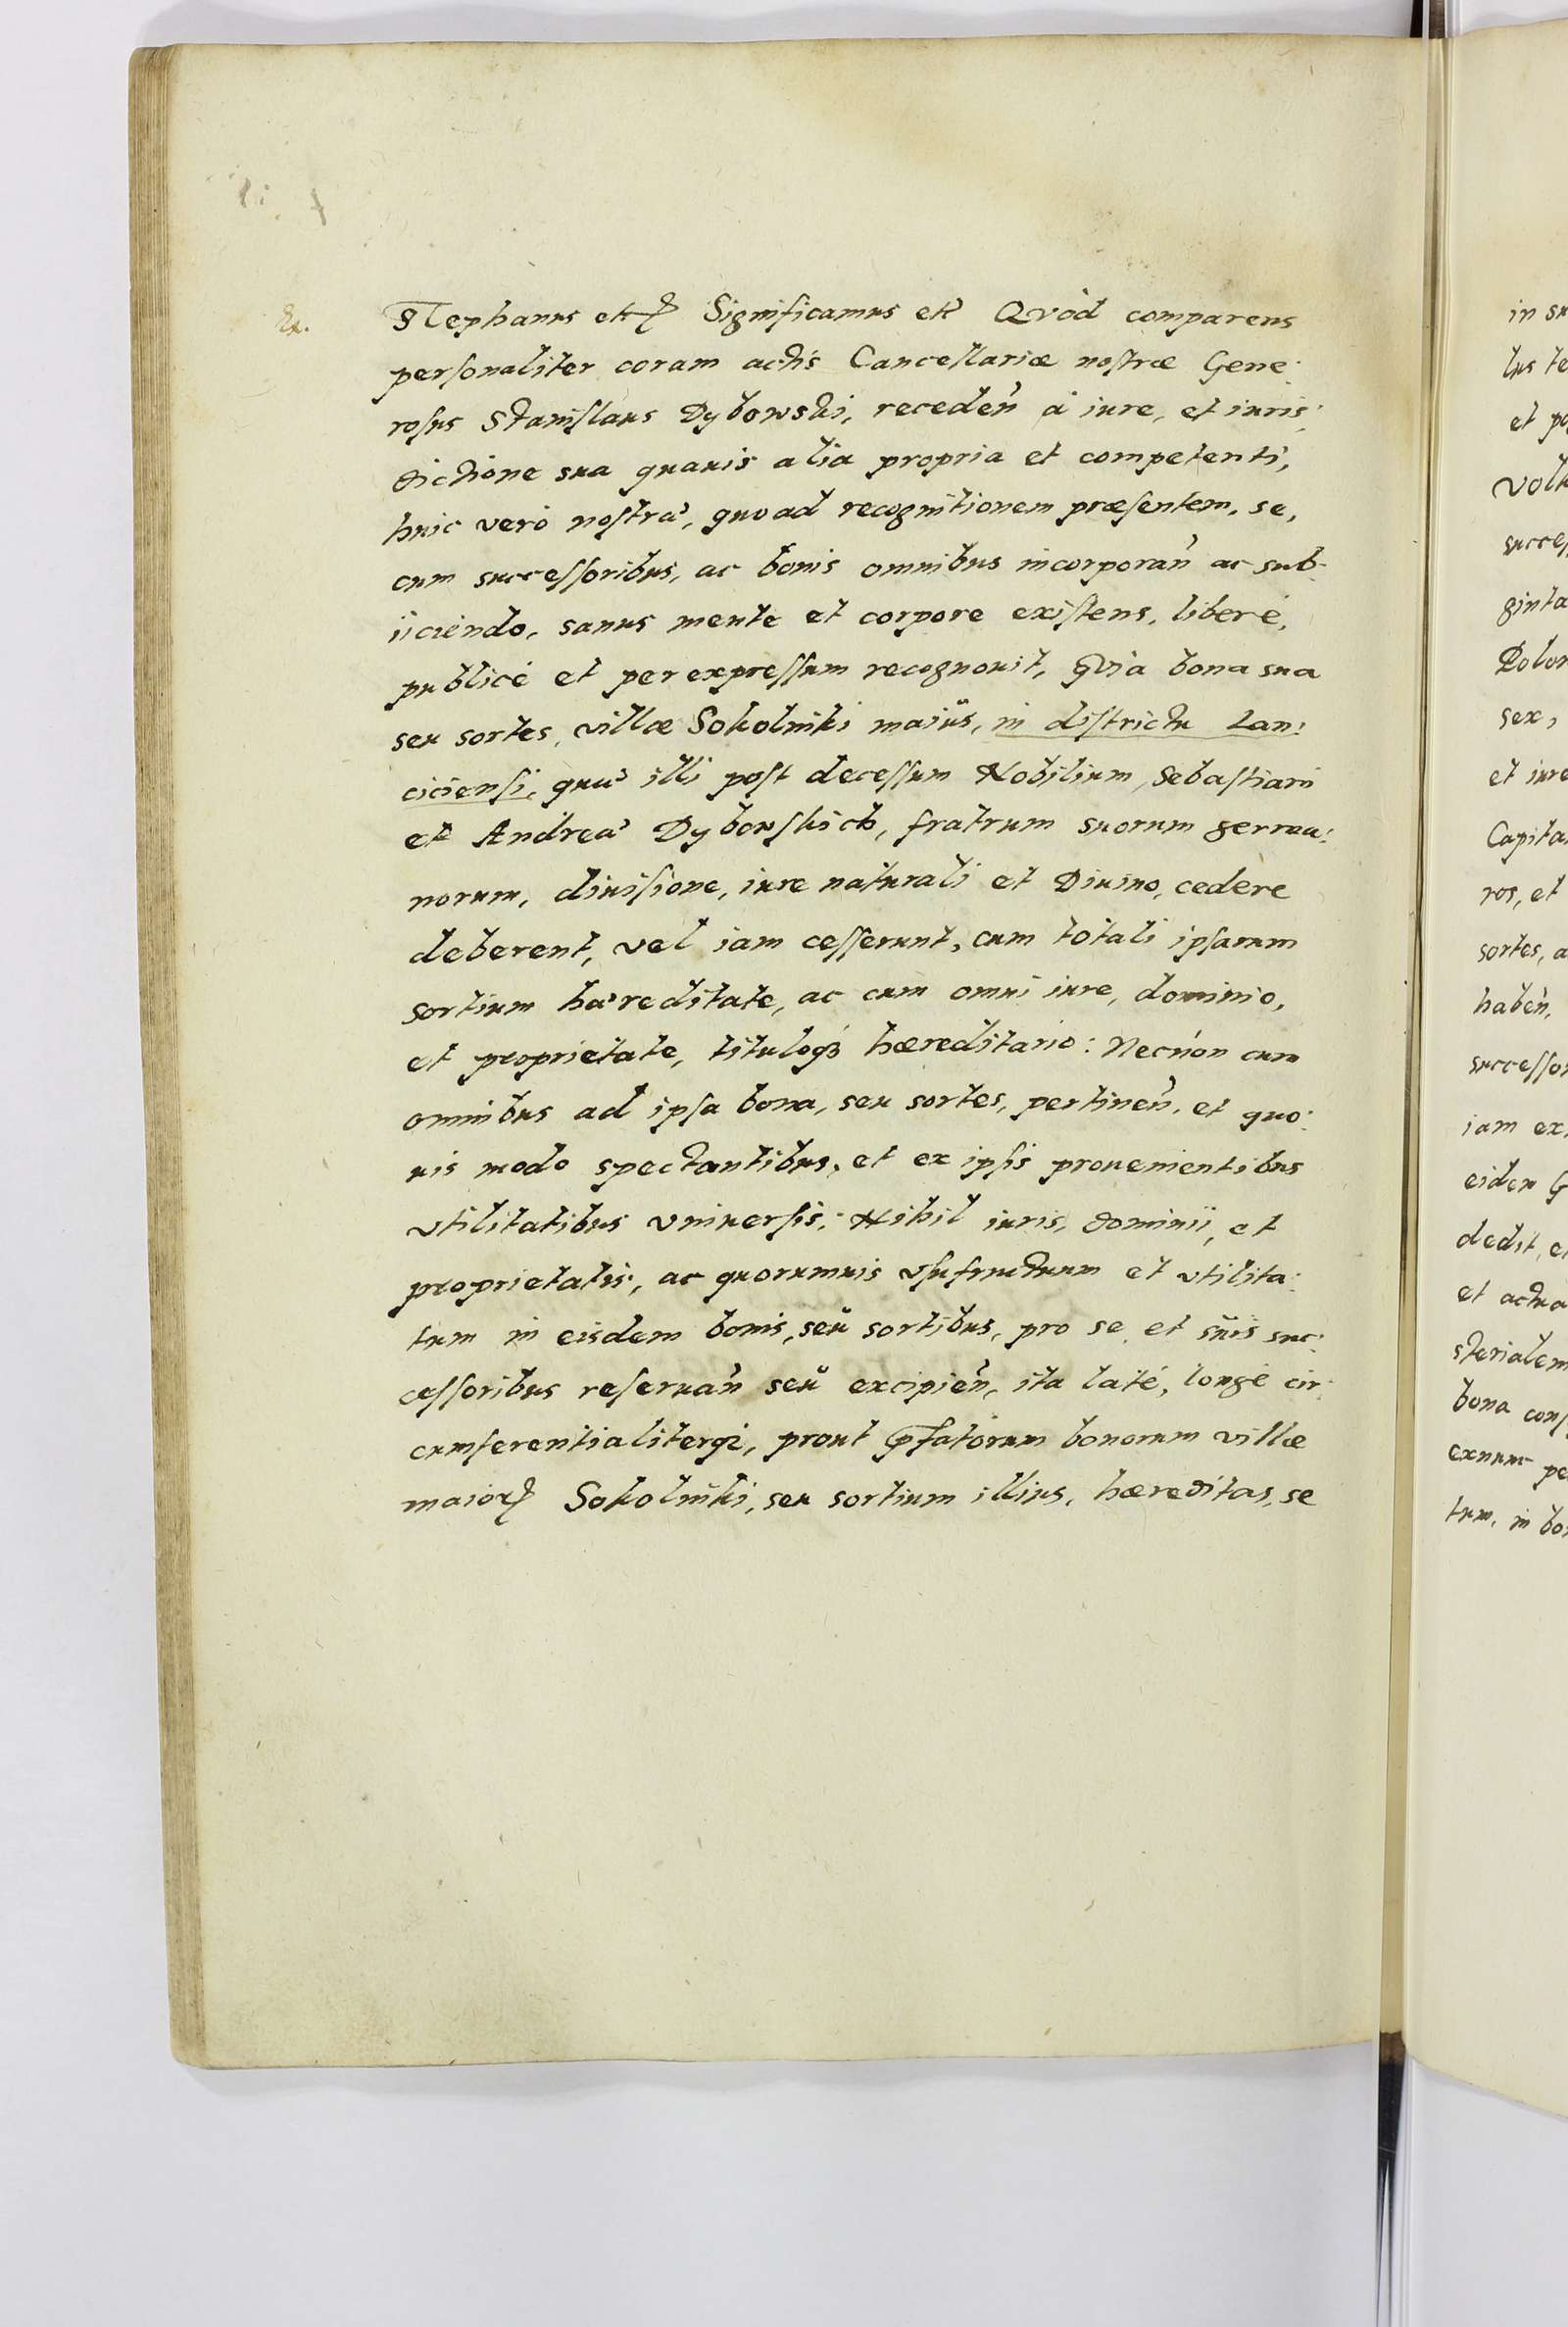 Ex.
Stephanus etc Significamus etc Qvòd comparens
personaliter coram actis Cancellariæ nostræ Gene:
rosus Stanislaus Dybowski, receden̄ à iure, et iuris:
dictione sua quauis alia propria et competenti,
huic verò nostræ, quoad recognitionem præsentem, se,
cum successoribus, ac bonis omnibus incorporan̄ ac sub:
ijciendo, sanus mente et corpore existens, liberè,
publicè et per expressum recognouit, Qvia bona sua
seu sortes, villæ Sokolniki maius, in districtu Lan:
ciciensi, quæ illi post decessum Nobilium Sebastiani
et Andreæ Dybowskich, fratrum suorum germa:
norum, diuisione, iure naturali et Diuino, cedere
deberent, vel iam cesserunt, cum totali ipsarum
sortium hæreditate, ac cum omni iure, dominio,
et proprietate, tituloqꝫ hæreditario: Necnon cum
omnibus ad ipsa bona, seu sortes, pertinen̄, et quo:
uis modo spectantibus, et ex ipsis prouenientibus
vtilitatibus vniuersis: Nihil iuris, dominii, et
proprietatis, ac quorumuis vsufructuum et vtilita:
tum in eisdem bonis, seu sortibus, pro se et suis suc:
cessoribus reseruan̄ seu excipien̄, ita latè, longè cir:
cumferentialiterqꝫ, prout p̄fatorum bonorum villæ
maioꝝ Sokolniki, seu sortium illius, hæreditas, se
in su
lus te
et po
Volu
succes
ginta
Polon
sex,
et iure
Capita
ros, et
sortes, a
haben̄,
successor
iam ex
eidem G
dedit, e
et actua
sterialem
bona cons
exnunc pe
tum, in bo